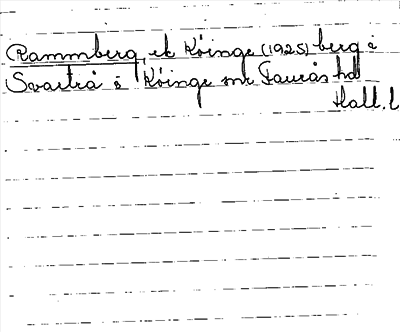 Rammberg, ek Köinge (1925) berg i
Svartrå o Köinge snr Faurås hd
Hall. l